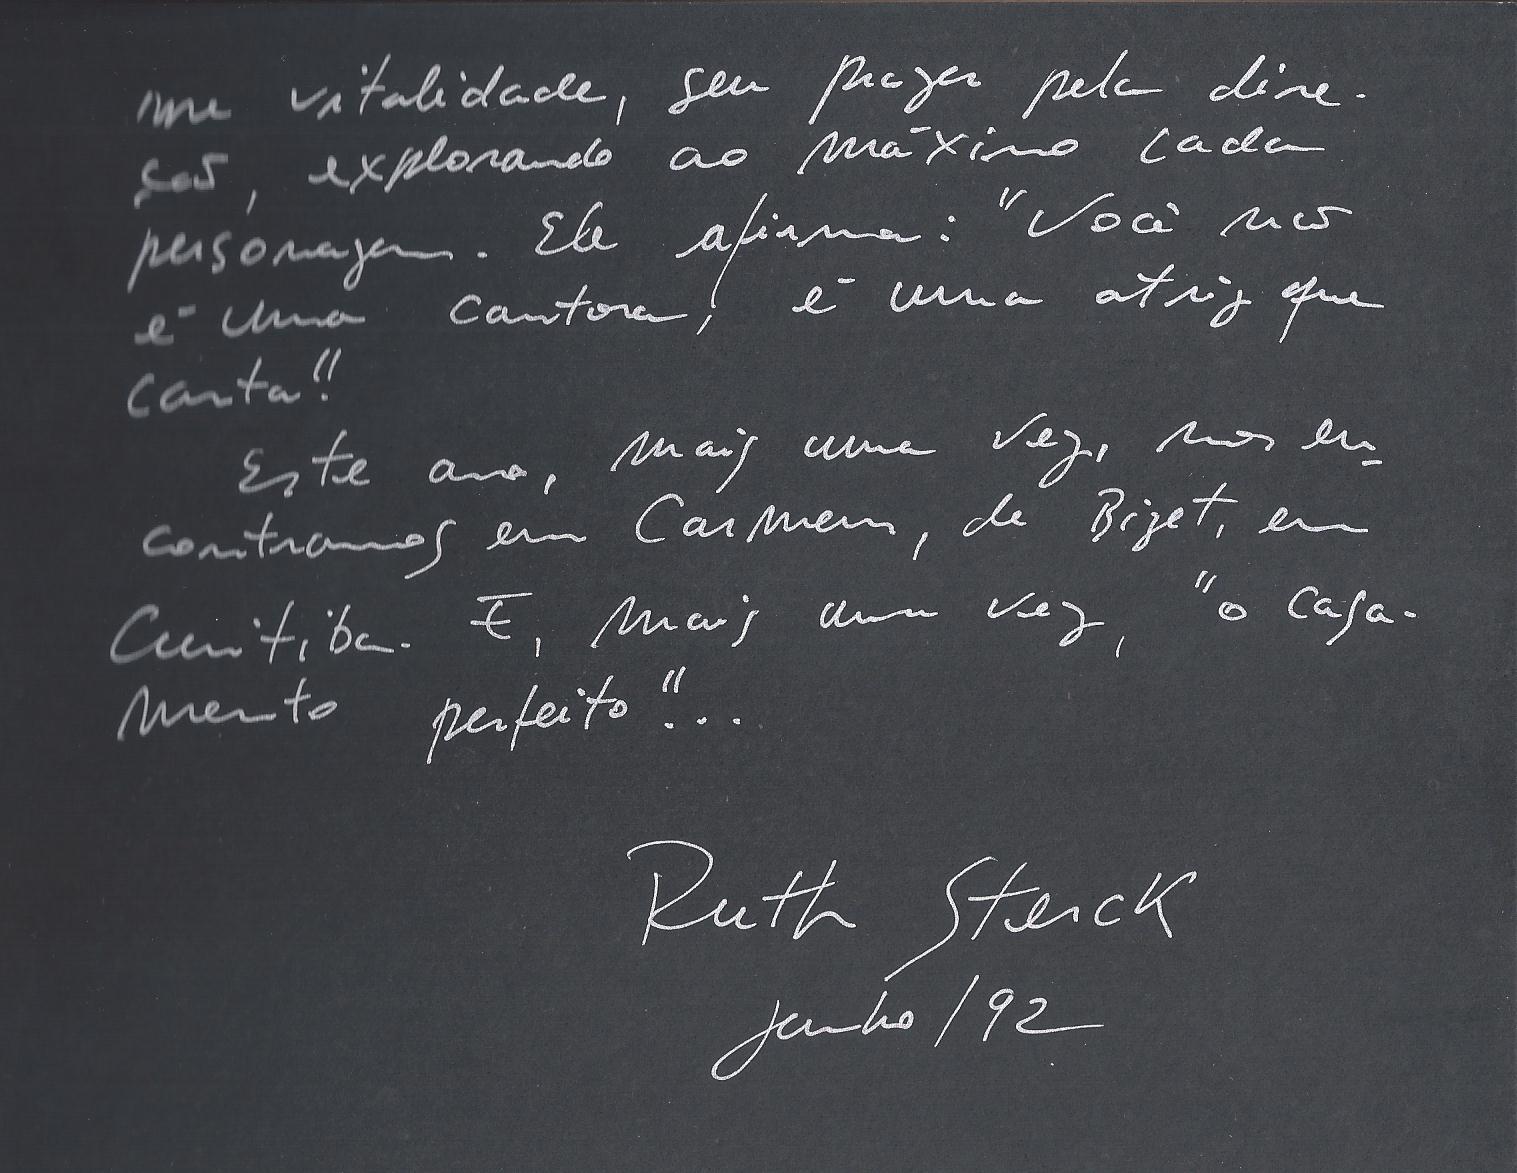 me vitalidade, seu prazer pela dire-
ção, explorando ao máximo cada
personagem. Ele afirma: "Você não
é uma cantora, é uma atriz que
canta"!
Este ano, mais uma vez, nos en-
contramos em Carmem, de Bizet, em
Curitiba. E, mais uma vez, "o casa-
mento perfeito"!...
Ruth Sterck
junho/92